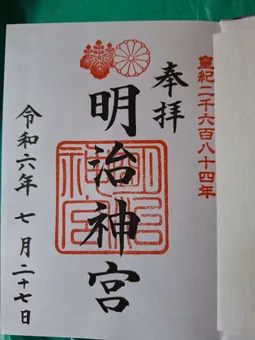 皇紀二千六百八十四年
奉拝
明治神宮
令和六年七月二十七日
明治神宮